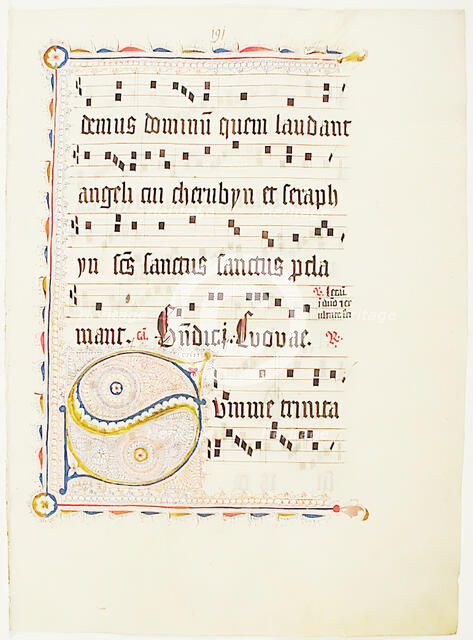 191
demus dominū quem laudant
angeli cui cherubyn et seraph
yn sc̄s sanctus sanctus p̱cla
mant. ca. Bn̄dict. Evovae. ℟.
Summe trinita
heritage